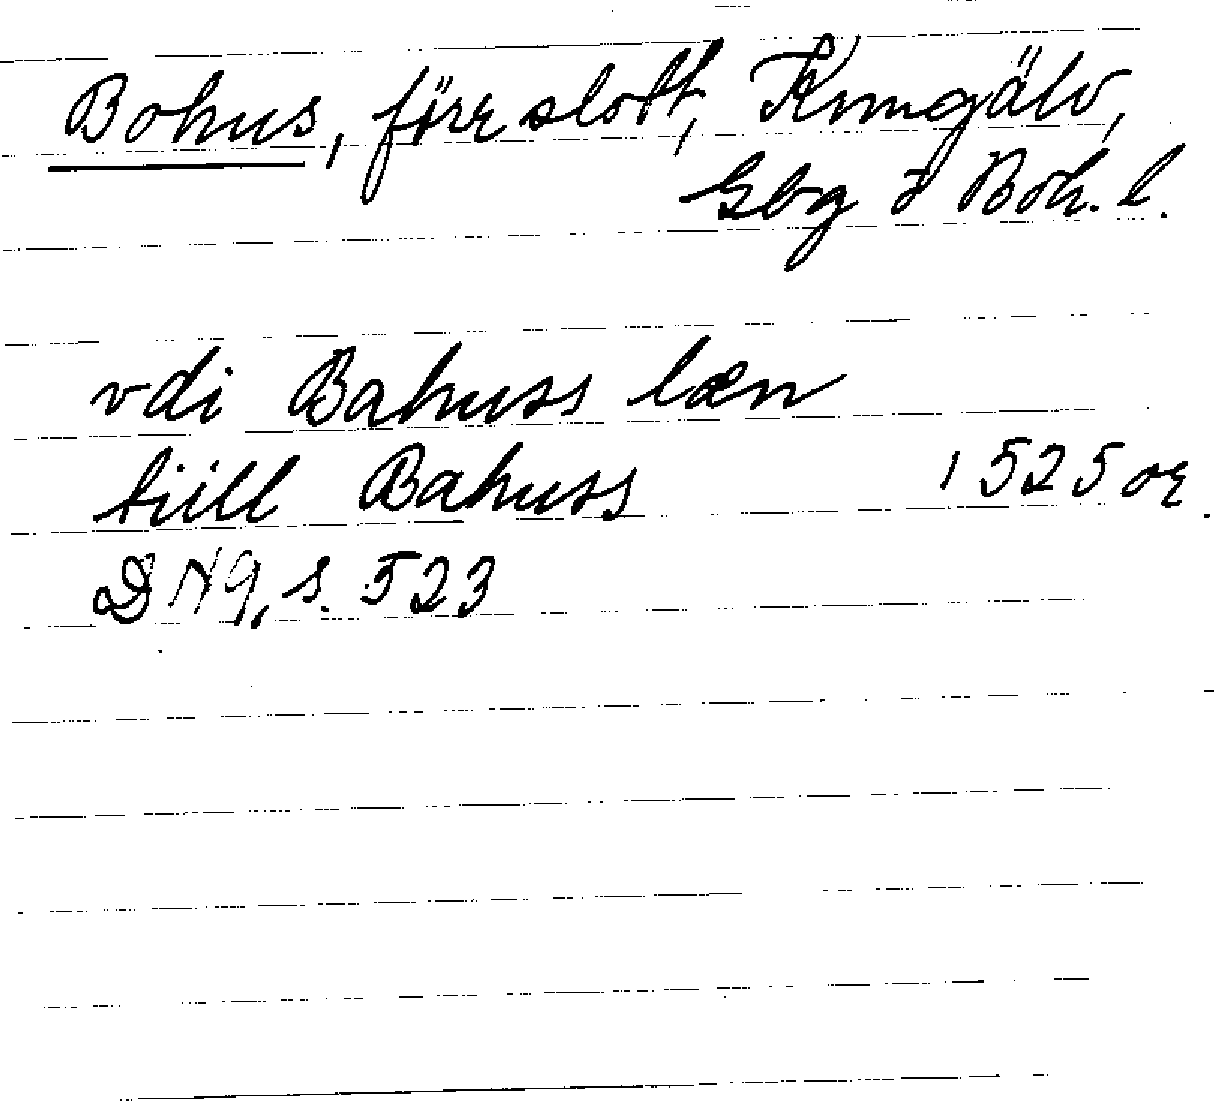 Bohus, förr slott, Kungälv,
Gbg o Boh. l.
vdi Bahuss læn
tiill Bahuss 1525 or.
DN 9, s. 523